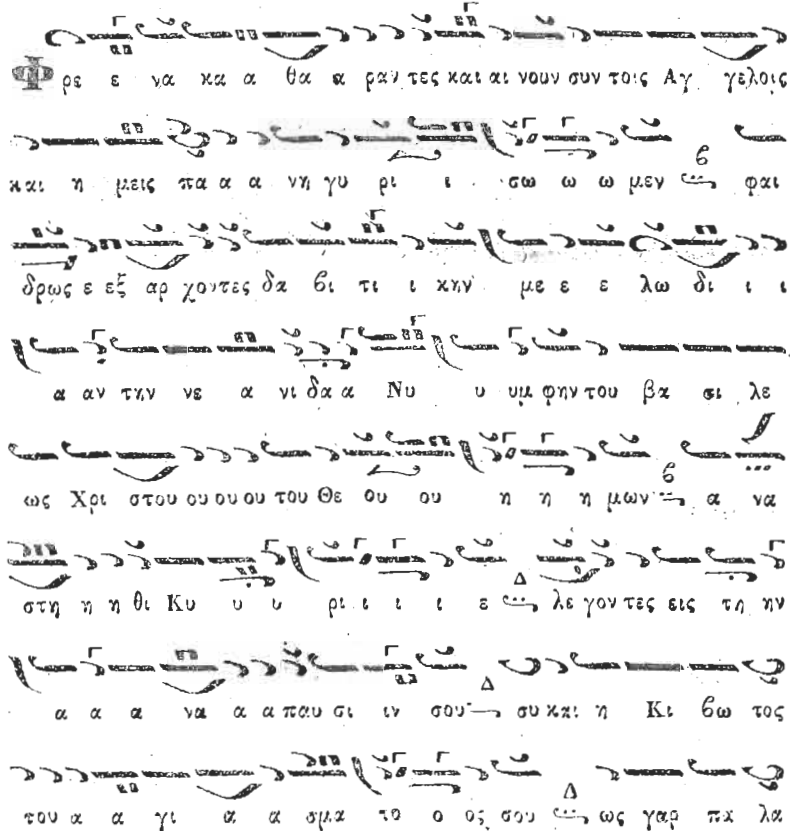 Φρε ε να κα α θα α ραν τες και αι νουν συν τοις Αγ γελοις
και η μεις πα α α νη γυ ρι ι σω ω ω μεν β φαι
δρως ε εξ αρ χοντες δα βι τι ι κην με ε ε λω δι ι ι
α αν την νε α νι δα α Νυ υ υμ φην του βα σι λε
ως Χρι στου ου ου ου του Θε ου ου η η η μων β α να
στη η η θι Κυ υ υ ρι ι ι ι ε Δ λε γον τες εις τη ην
α α α να α α παυ σι ιν σου Δ συ και η Κι βω τος
του α α γι α α σμα το ο ος σου Δ ως γαρ πα λα